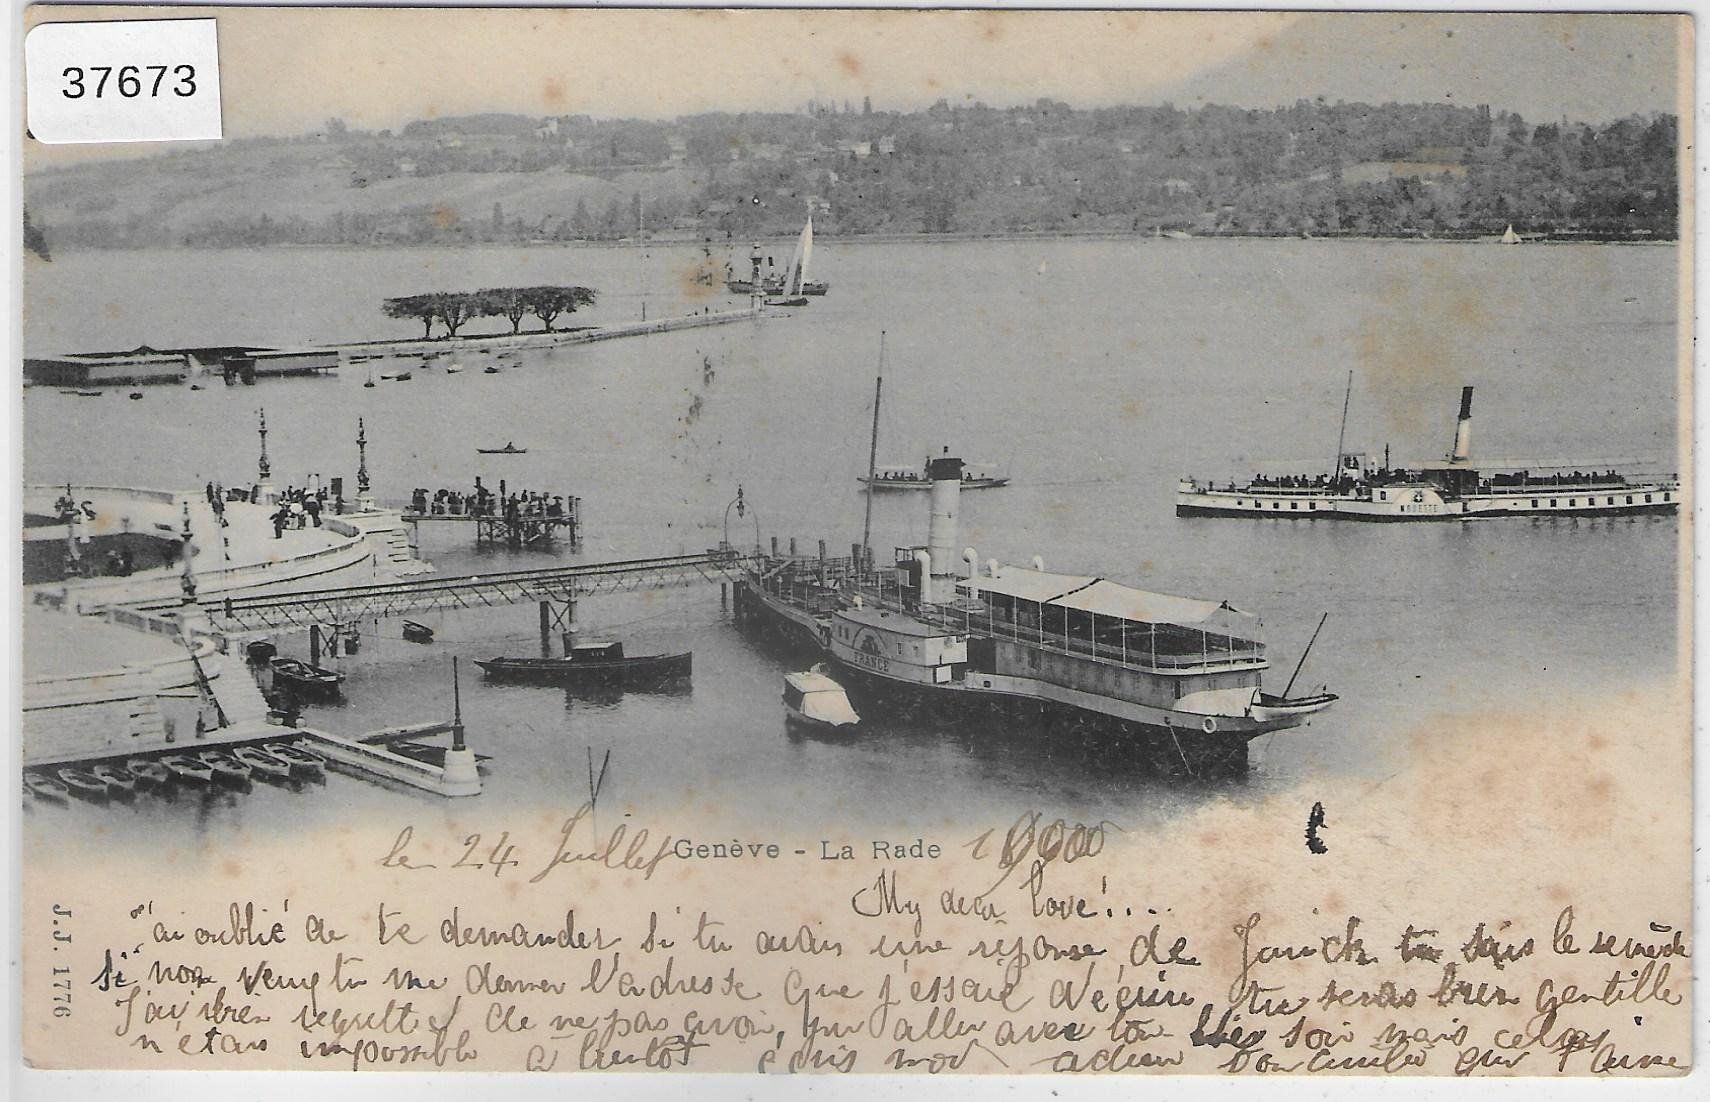 37673
FRANCE
le 24 Juillet Genève - La Rade
My dear love!....
J'ai oublié de te demander si tu avais une réponse de tu sais le remède
si non veux tu me donner l'adresse que j'essaie d'écrire tu seras bien gentille
J'ai bien regretté de ne pas avoir pu aller avec toi hier soir mais cela
n'était impossible à bientôt écris moi adieu ton qui t'aime
J.J. 1776